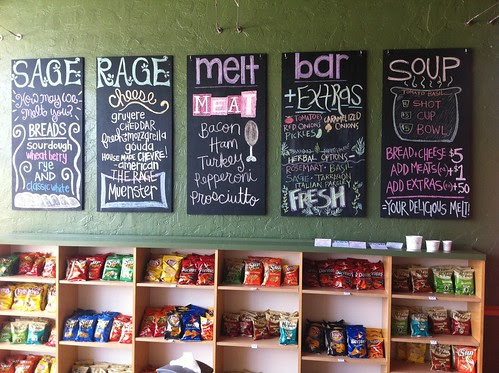 SAGE
How may we
melt you?
BREADS
sourdough
wheat berry
rye
AND
classic white
RAGE
cheese
gruyere
CHEDDAR
fresh mozzarella
gouda
HOUSE MADE CHEVRE!
-american
THE RAGE
Muenster
melt
MEAT
Bacon
Ham
Turkey
Pepperoni
Prosciutto
bar
+EXTRAS
TOMATOES
CARAMELIZED
RED ONIONS
ONIONS
PICKLES
HERBAL OPTIONS
ROSEMARY - BASIL
SAGE - TARRAGON
ITALIAN PARSLEY
FRESH
SOUP
TOMATO BASIL
SHOT
CUP
BOWL
BREAD+CHEESE $5
ADD MEATS +$1
ADD EXTRAS +.50
-YOUR DELICIOUS MELT!